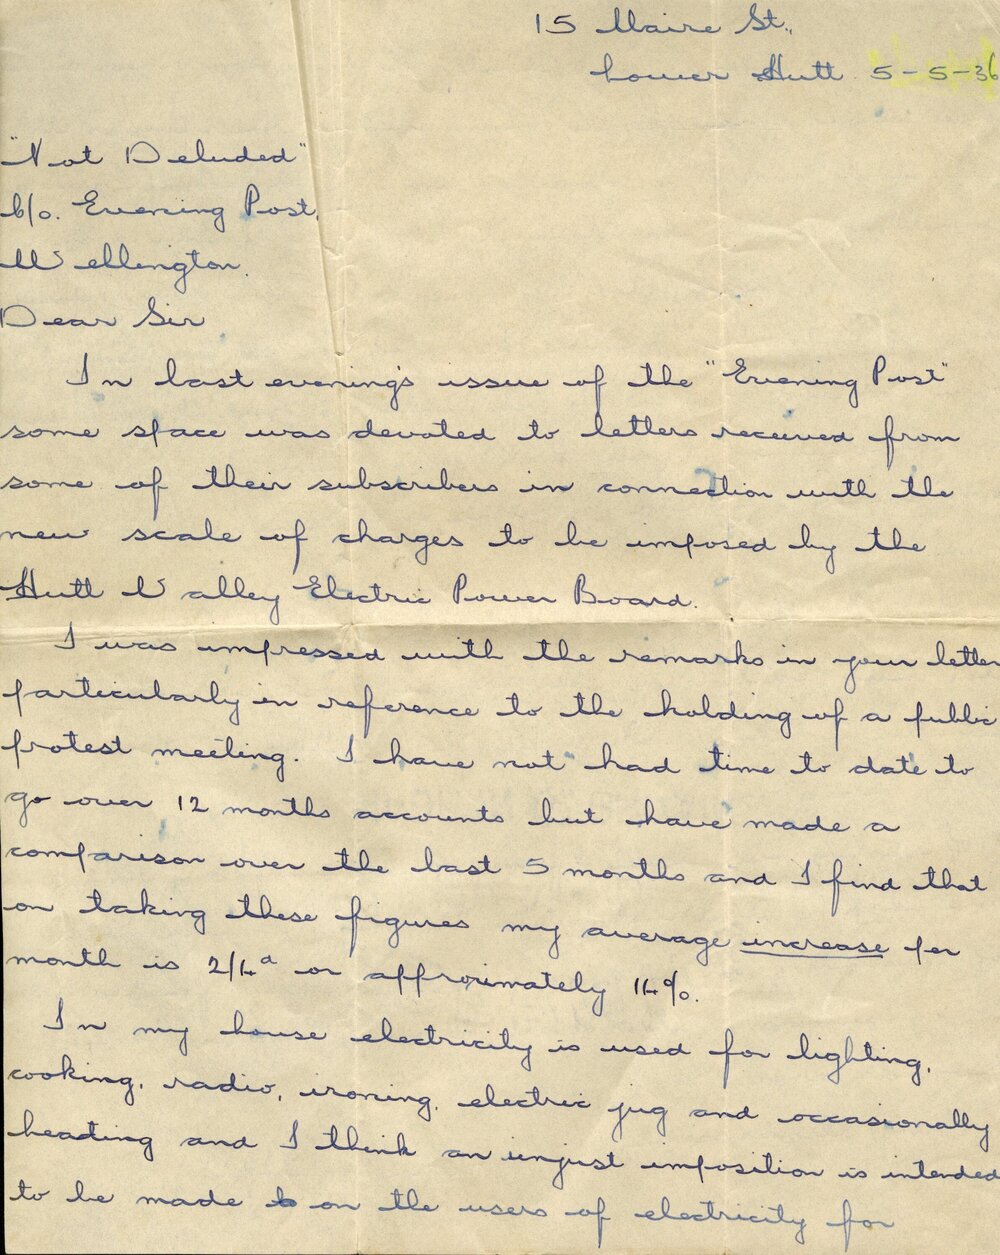 15 Maire St.,
Lower Hutt 5-5-36
"Not Deluded"
C/o. Evening Post,
Wellington.
Dear Sir
In last evening's issue of the "Evening Post"
some space was devoted to letters received from
some of their subscribers in connection with the
new scale of charges to be imposed by the
Hutt Valley Electric Power Board.
I was impressed with the remarks in your letter
particularly in reference to the holding of a public
protest meeting. I have not had time to date to
go over 12 months accounts but have made a
comparison over the last 5 months and I find that
on taking these figures my average increase per
month is 2/4d or approximately 14%.
In my house electricity is used for lighting,
cooking, radio, ironing, electric jug and occasionally
heating and I think an unjust imposition is intended
to be made on the users of electricity for